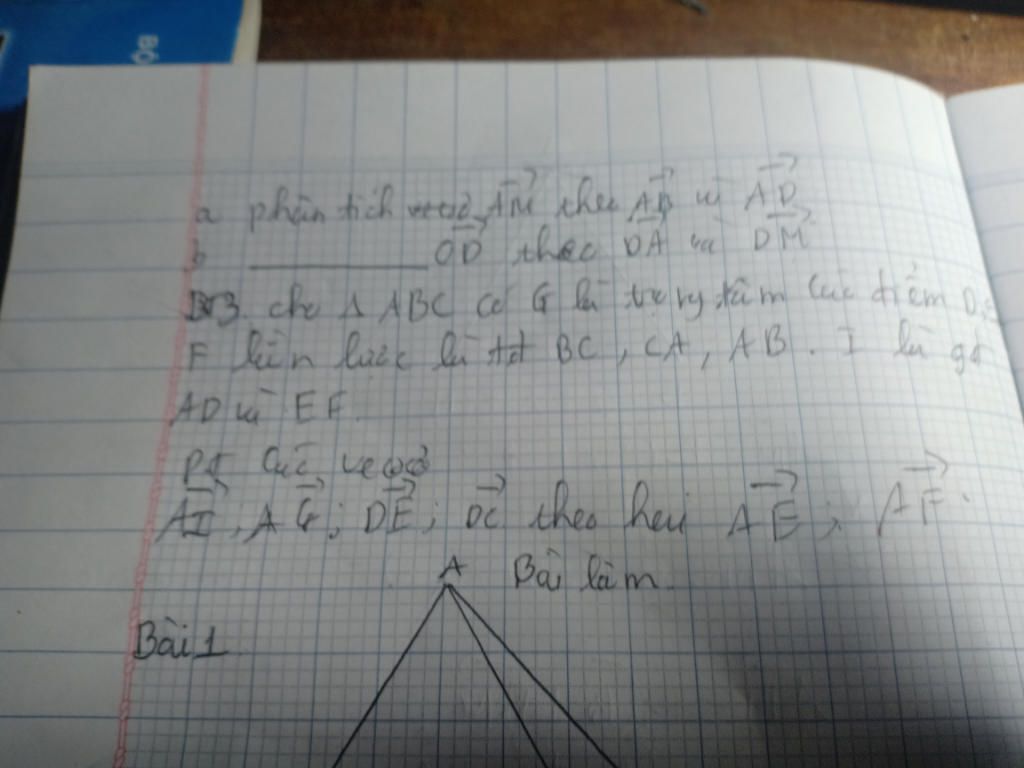 BỘ
a phân tích vectơ AM theo AB và AD
b ________ OD theo DA và DM
B3. cho Δ ABC có G là trọng tâm các điểm D, E
F lần lượt là tđ BC, CA, AB. I là gđ
AD và EF.
PT các vectơ
AI; AG; DE; DC theo hai AE; AF.
A Bài làm.
Bài 1